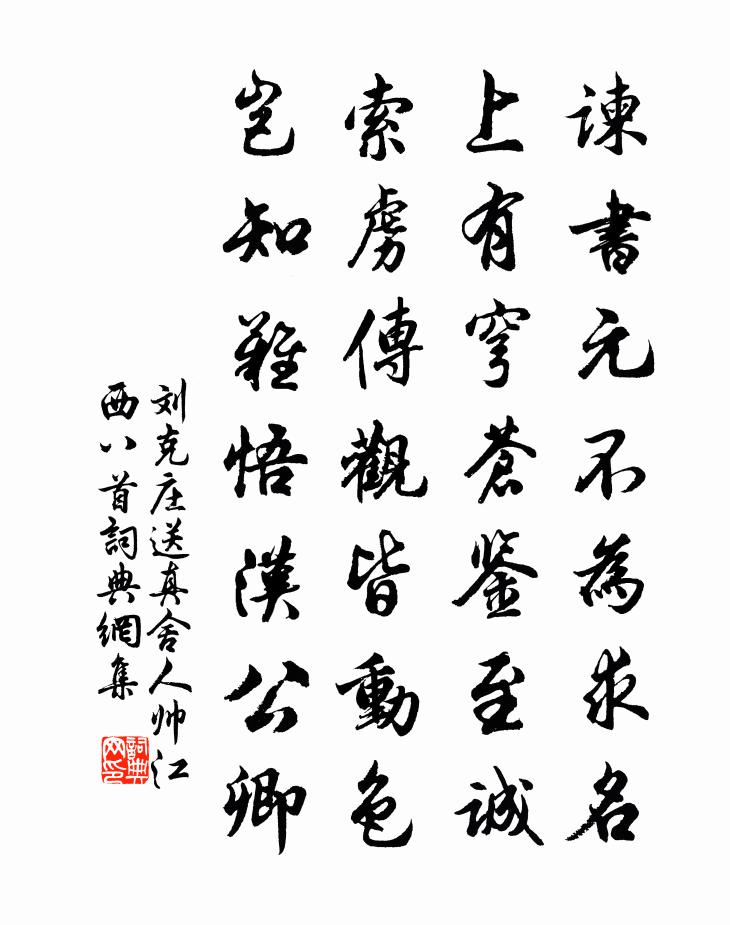 諫書元不為求名
上有穹蒼鑒至誠
索虜傳觀皆動色
豈知難悟漢公卿
刘克庄送真舍人帅江
西八首詞典網集
詞典网印